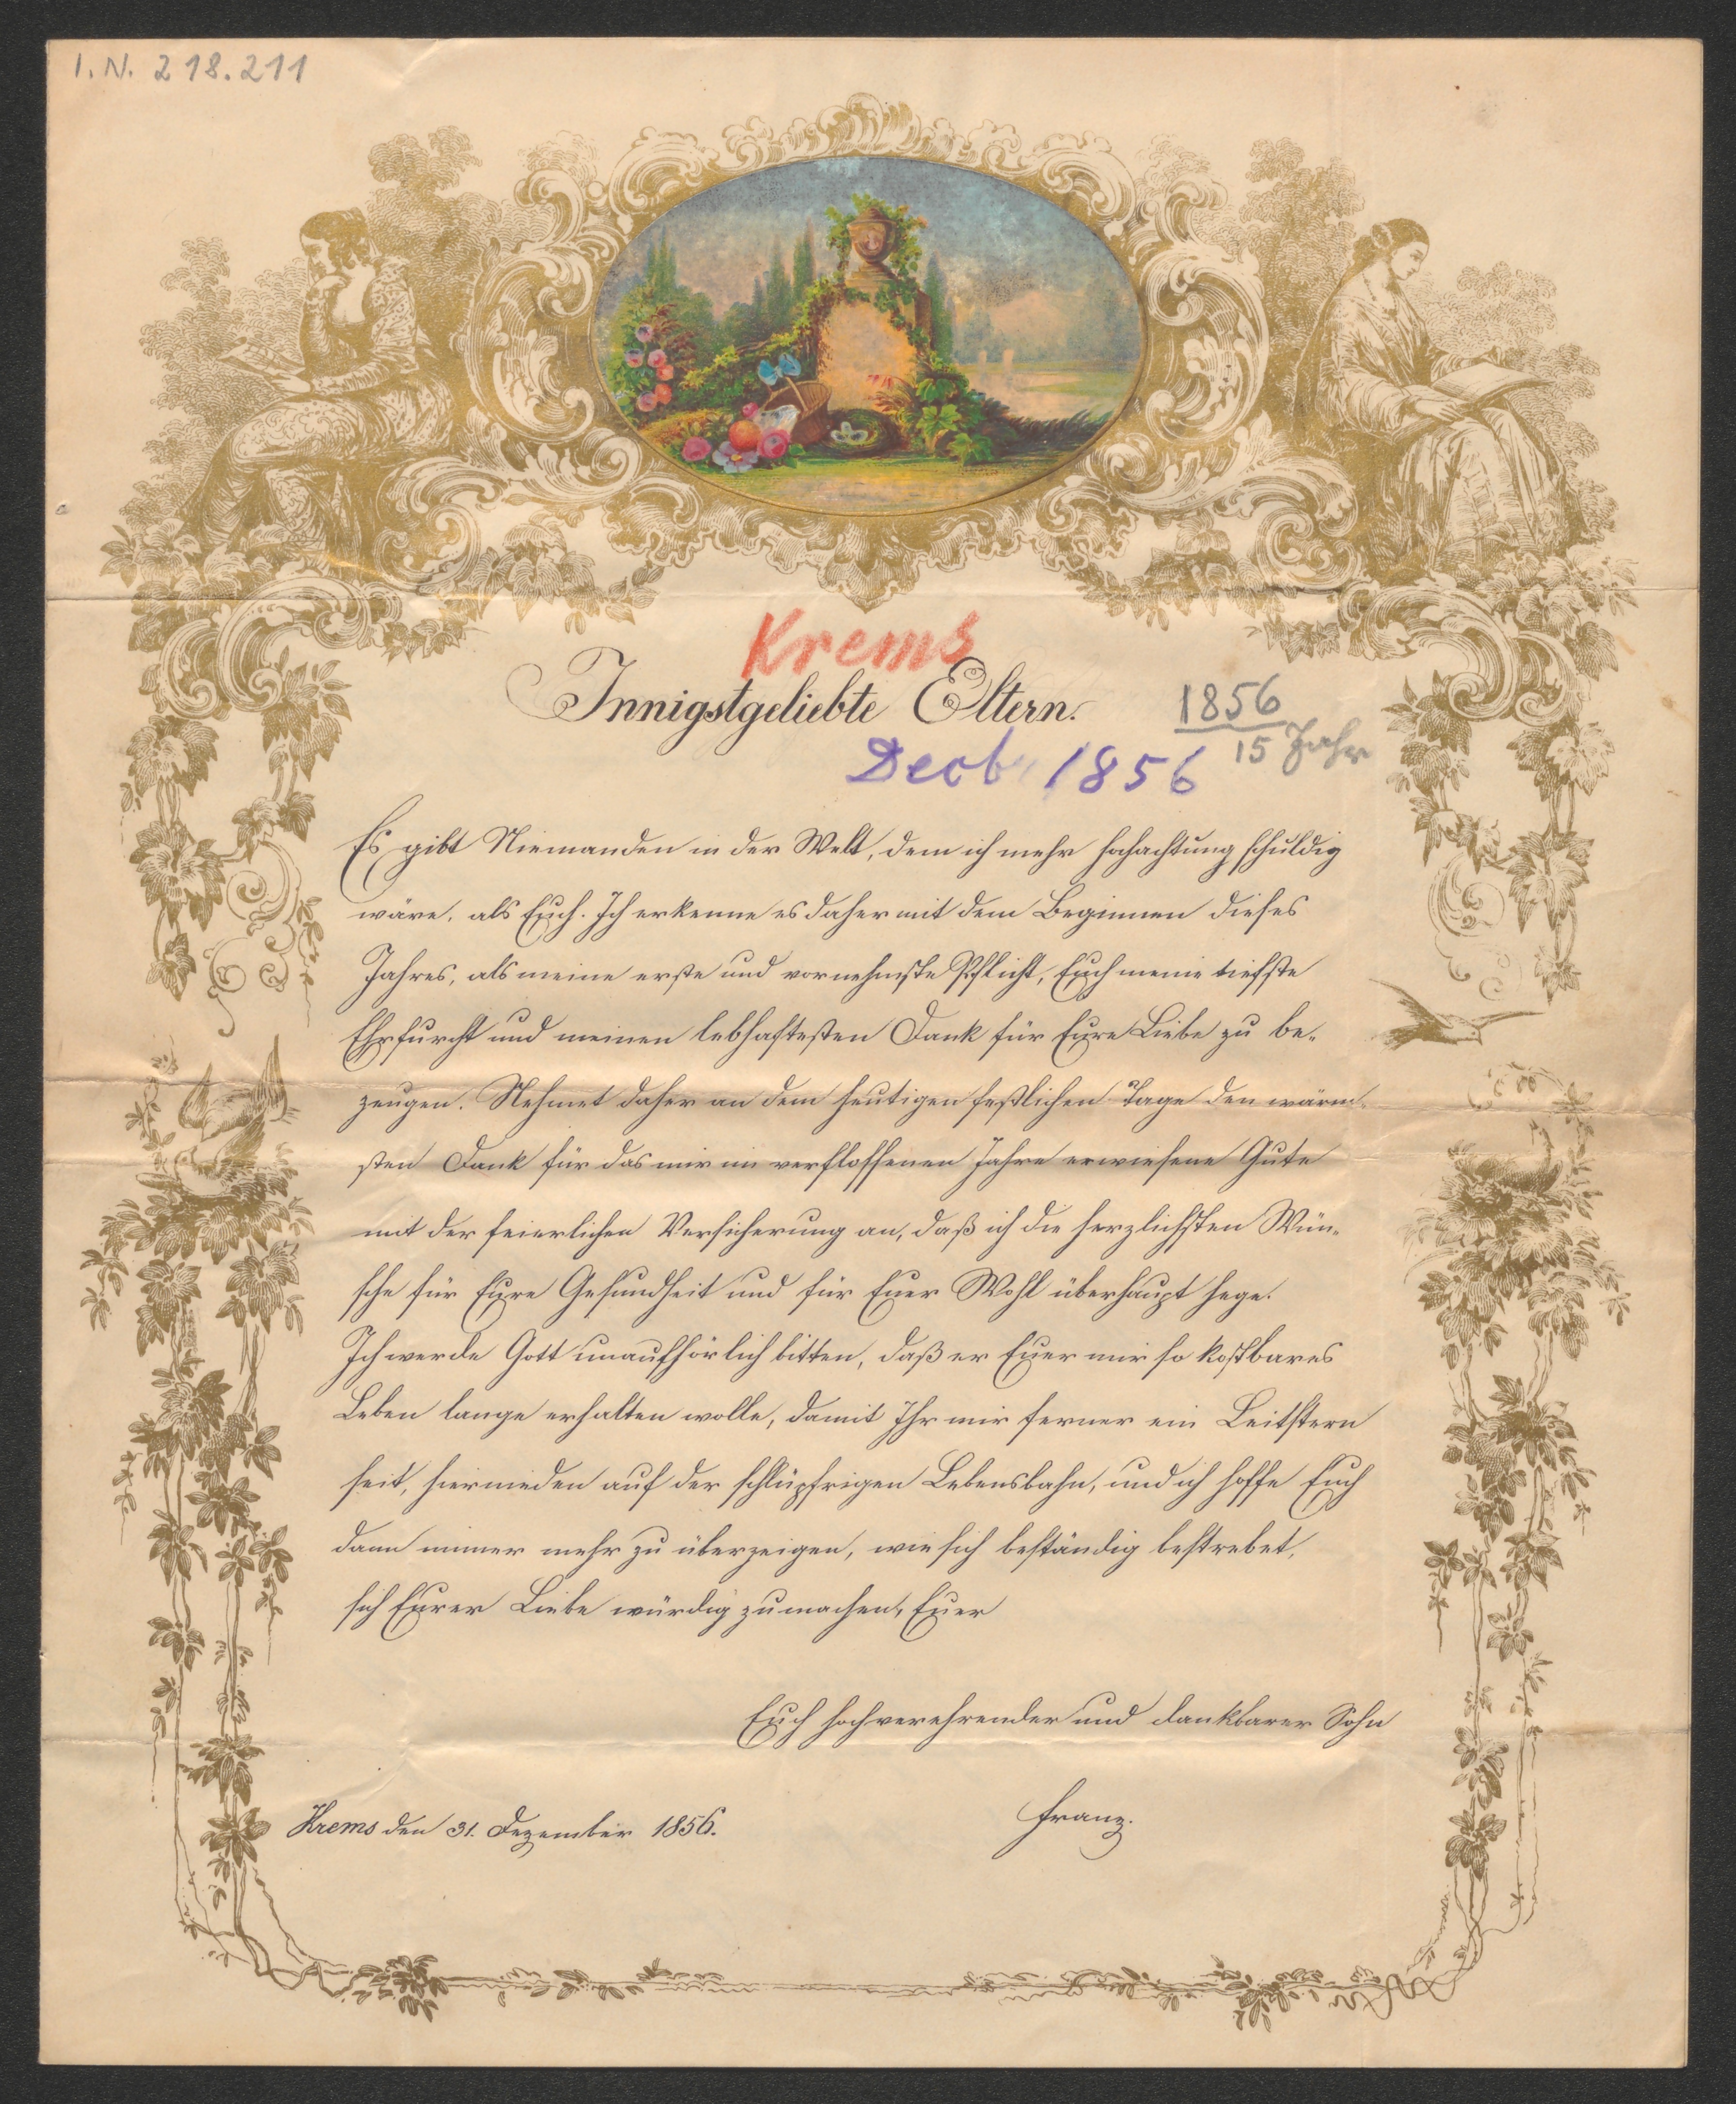 I. N. 218.211
Krems
Innigstgeliebte Eltern.
1856
15 Jahr
Decb. 1856
Es gibt Niemanden in der Welt, dem ich mehr Hochachtung schuldig
wäre, als Euch. Ich erkenne es daher mit dem Beginnen dieses
Jahres, als meine erste und vornehmste Pflicht, Euch meine tiefste
Ehrfurcht und meinen lebhaftesten Dank für Eure Liebe zu be-
zeugen. Nehmet daher an dem heutigen festlichen Tage den wärm-
sten Dank für das mir im verflossenen Jahre erwiesene Gute
mit der feierlichen Versicherung an, daß ich die herzlichsten Wün-
sche für Eure Gesundheit und für Euer Wohl überhaupt hege.
Ich werde Gott unaufhörlich bitten, daß er Euer mir so kostbares
Leben lange erhalten wolle, damit Ihr mir ferner ein Leitstern
seid, hiernieden auf der schlüpfrigen Lebensbahn, und ich hoffe Euch
dann immer mehr zu überzeigen, wie sich beständig bestrebet,
sich Eurer Liebe würdig zu machen, Euer
Euch hochverehrender und dankbarer Sohn
Krems den 31. Dezember 1856.
Franz.